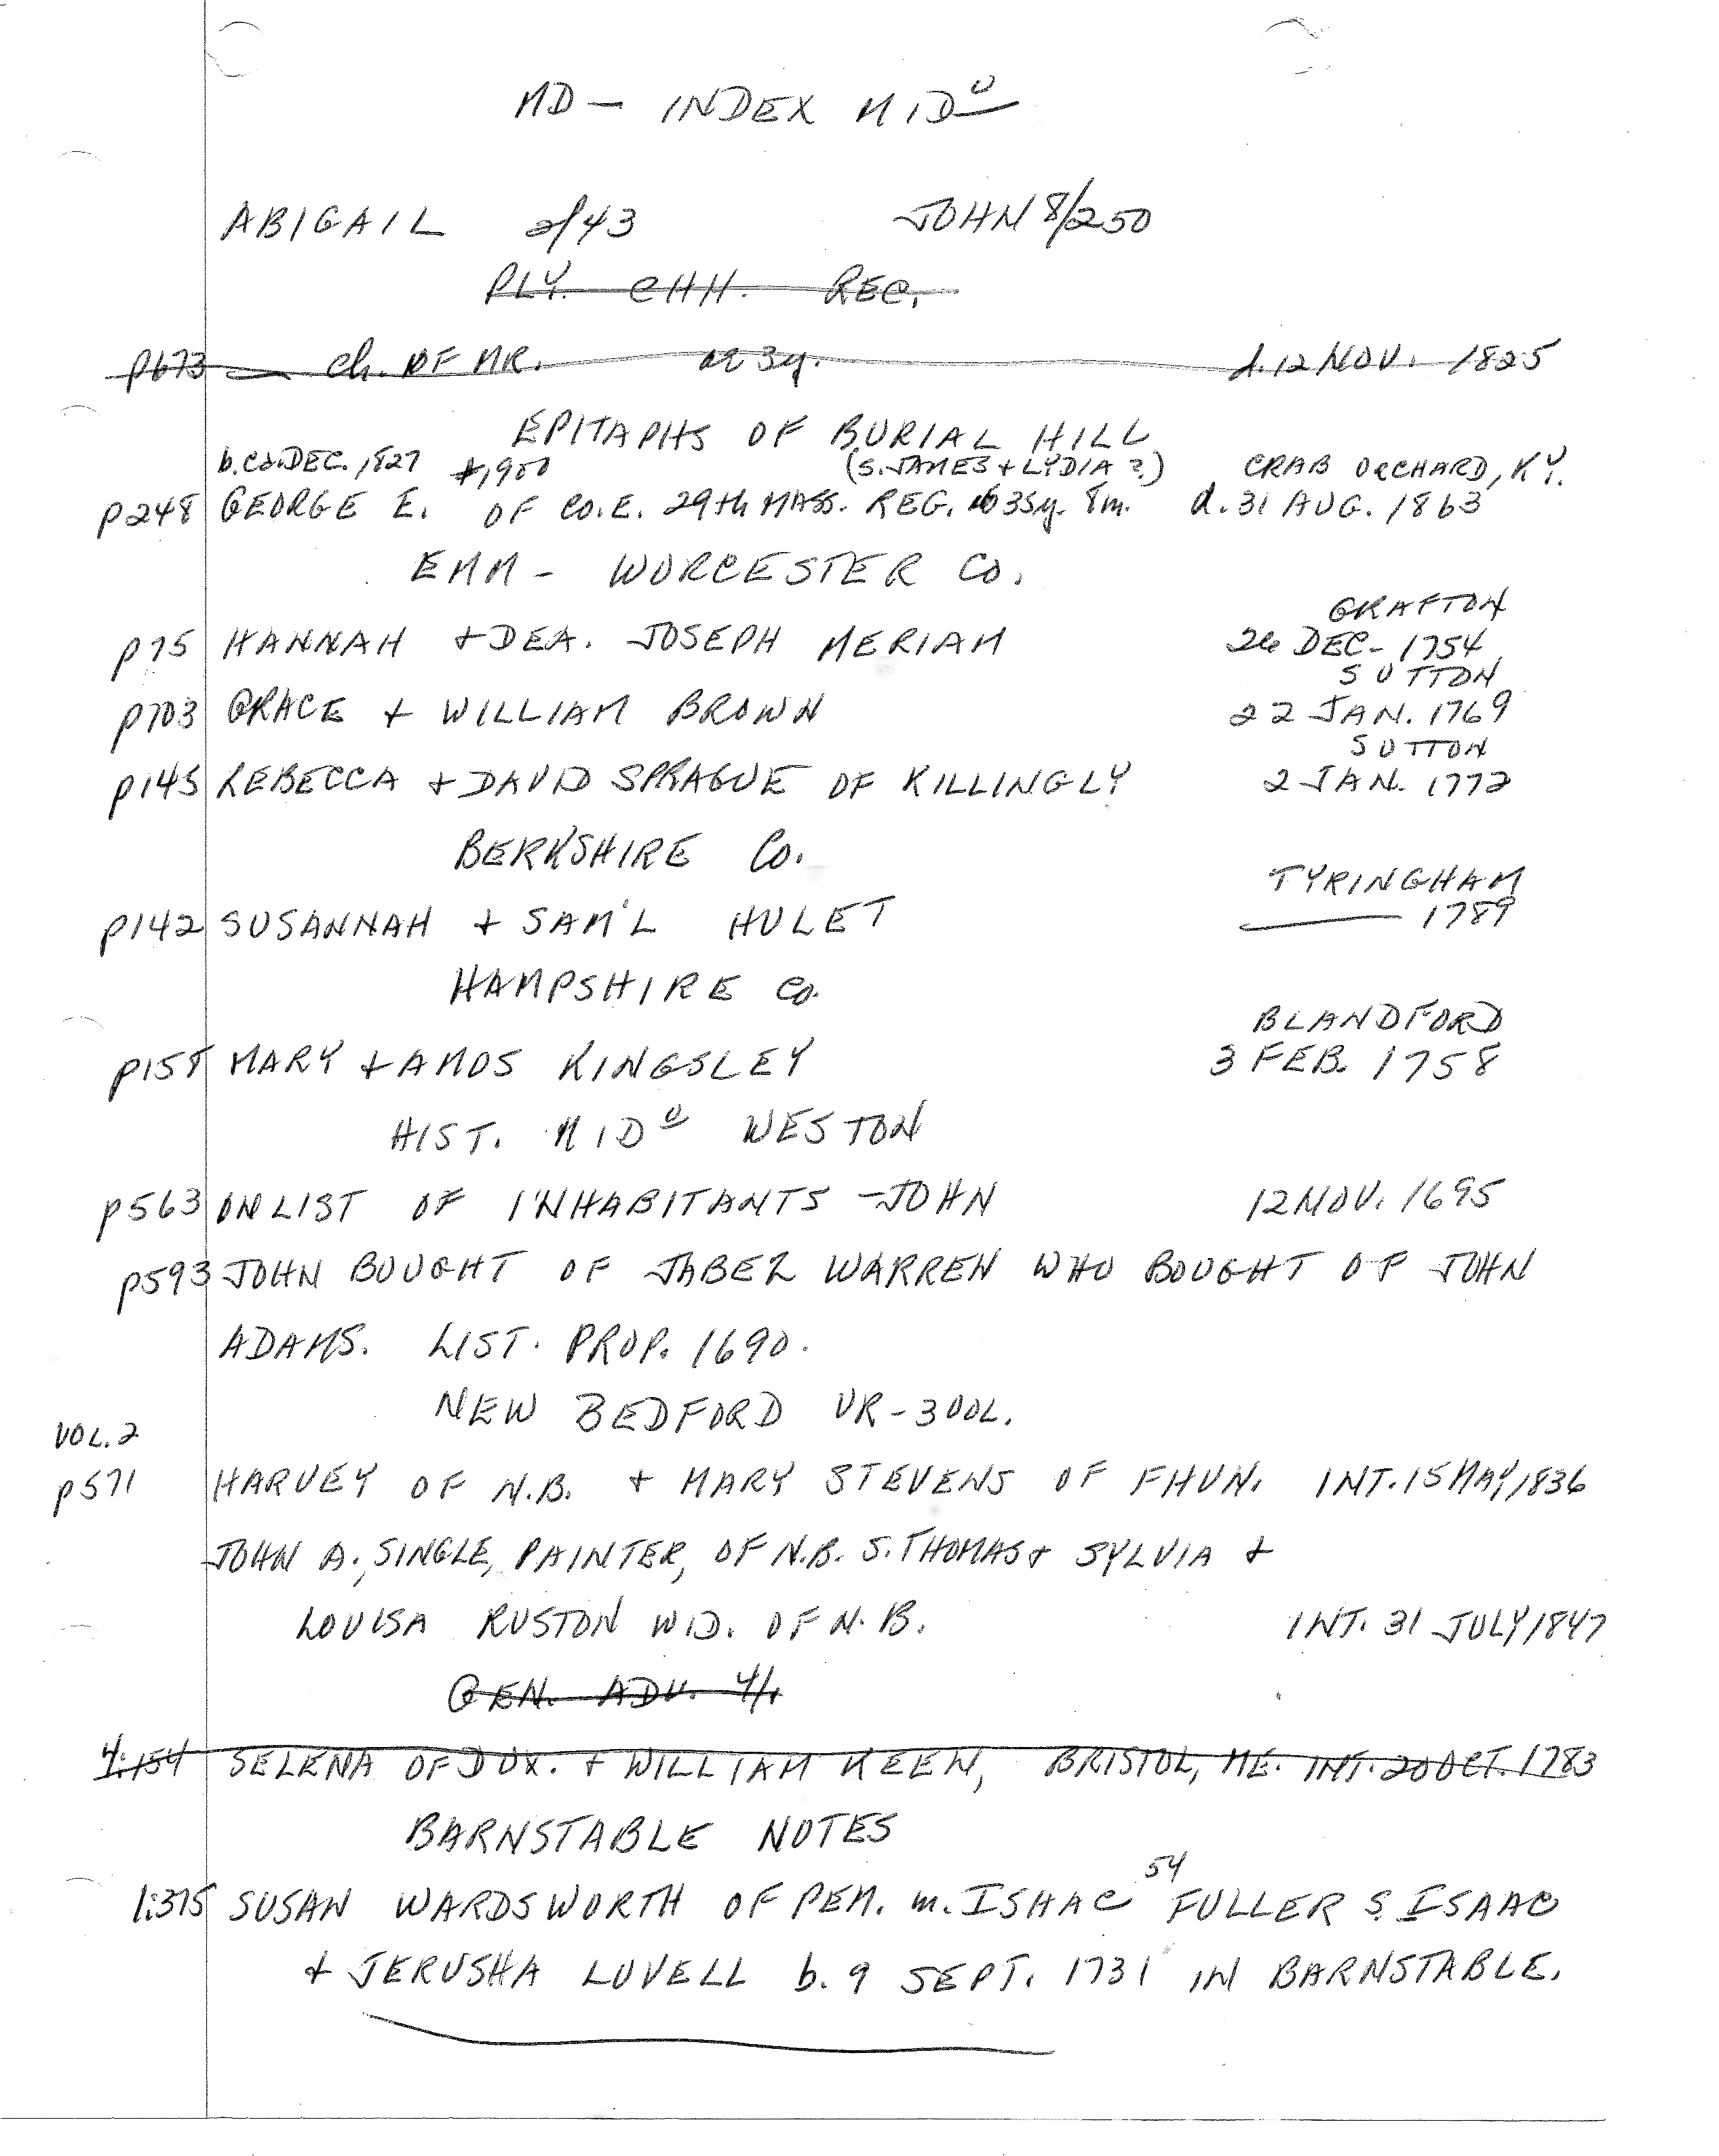 MD – INDEX MIDº
ABIGAIL 2/43 JOHN 8/250
PLY. CHH. REC.
p673 — ch. OF MR. ae 3y. d. 12 NOV. 1825
EPITAPHS OF BURIAL HILL
b. ca. DEC. 1827 #1,900 (S. JAMES + LYDIA ?) CRAB ORCHARD, KY.
p248 GEORGE E. OF CO. E. 29th MASS. REG. 35y. 8m. d. 31 AUG. 1863
EMM – WORCESTER CO.
GRAFTON
p75 HANNAH + DEA. JOSEPH MERIAM 26 DEC – 1754
SUTTON
p703 GRACE + WILLIAM BROWN 22 JAN. 1769
SUTTON
p145 REBECCA + DAVID SPRAGUE OF KILLINGLY 2 JAN. 1772
BERKSHIRE Co.
TYRINGHAM
p142 SUSANNAH + SAM'L HULET — 1789
HAMPSHIRE Co.
BLANDFORD
p158 MARY + AMOS KINGSLEY 3 FEB. 1758
HIST. MIDº WESTON
p563 ON LIST OF INHABITANTS – JOHN 12 NOV. 1695
p593 JOHN BOUGHT OF JABEZ WARREN WHO BOUGHT OF JOHN
ADAMS. LIST. PROP. 1690.
NEW BEDFORD VR – 3 VOL.
VOL. 2
p571 HARVEY OF N.B. + MARY STEVENS OF FHVN. INT. 15 MAY 1836
JOHN A., SINGLE, PAINTER, OF N.B. S. THOMAS + SYLVIA +
LOUISA RUSTON WID. OF N.B. INT. 31 JULY 1847
GEN. ADV. 4/1
4:154 SELENA OF DUX. + WILLIAM KEEN, BRISTOL, ME. INT. 20 OCT. 1783
BARNSTABLE NOTES
54
1:375 SUSAN WARDSWORTH OF PEM. m. ISHAC FULLER S. ISAAC
+ JERUSHA LOVELL b. 9 SEPT. 1731 IN BARNSTABLE.